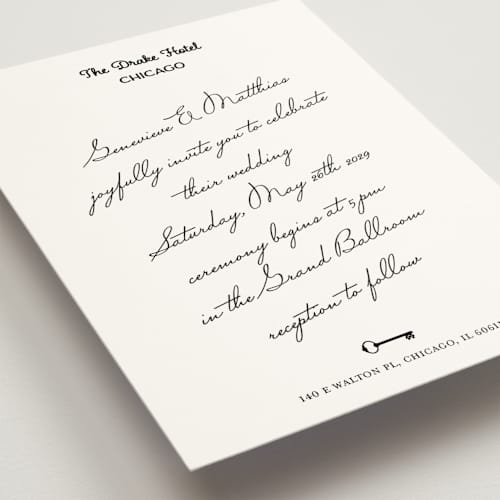 The Drake Hotel
CHICAGO
Genevieve & Matthias
joyfully invite you to celebrate
their wedding
Saturday, May 26th 2029
ceremony begins at 5 pm
in the Grand Ballroom
reception to follow
140 E WALTON PL, CHICAGO, IL